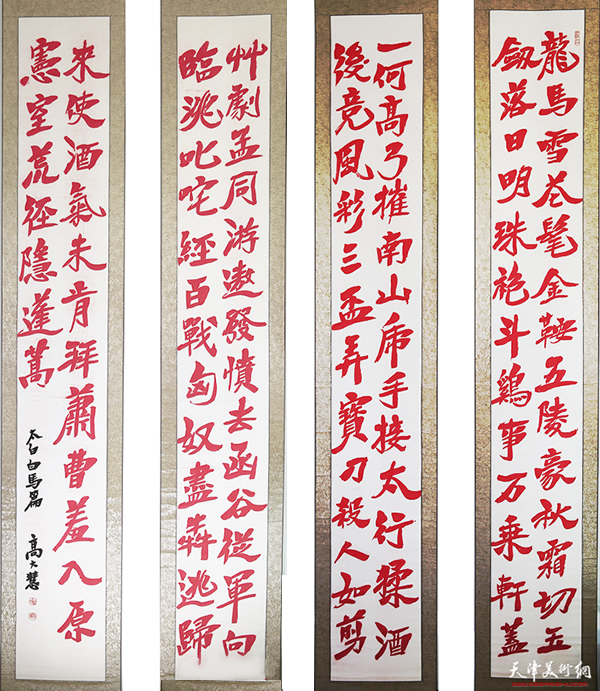 龍馬雪花髦金鞍五陵豪秋霜切玉
劔落日明珠袍斗鷄事万乘軒蓋
一何高弓摧南山虎手接太行猱酒
後竞風彩三盃弄寶刀殺人如剪
艸劇孟同游遨發憤去函谷從軍向
臨洮叱咤經百戰匈奴盡犇逃歸
来使酒氣未肯拜蕭曹羞入原
憲室荒徑隱蓬蒿
太白白馬篇 高大慧
天津美術網